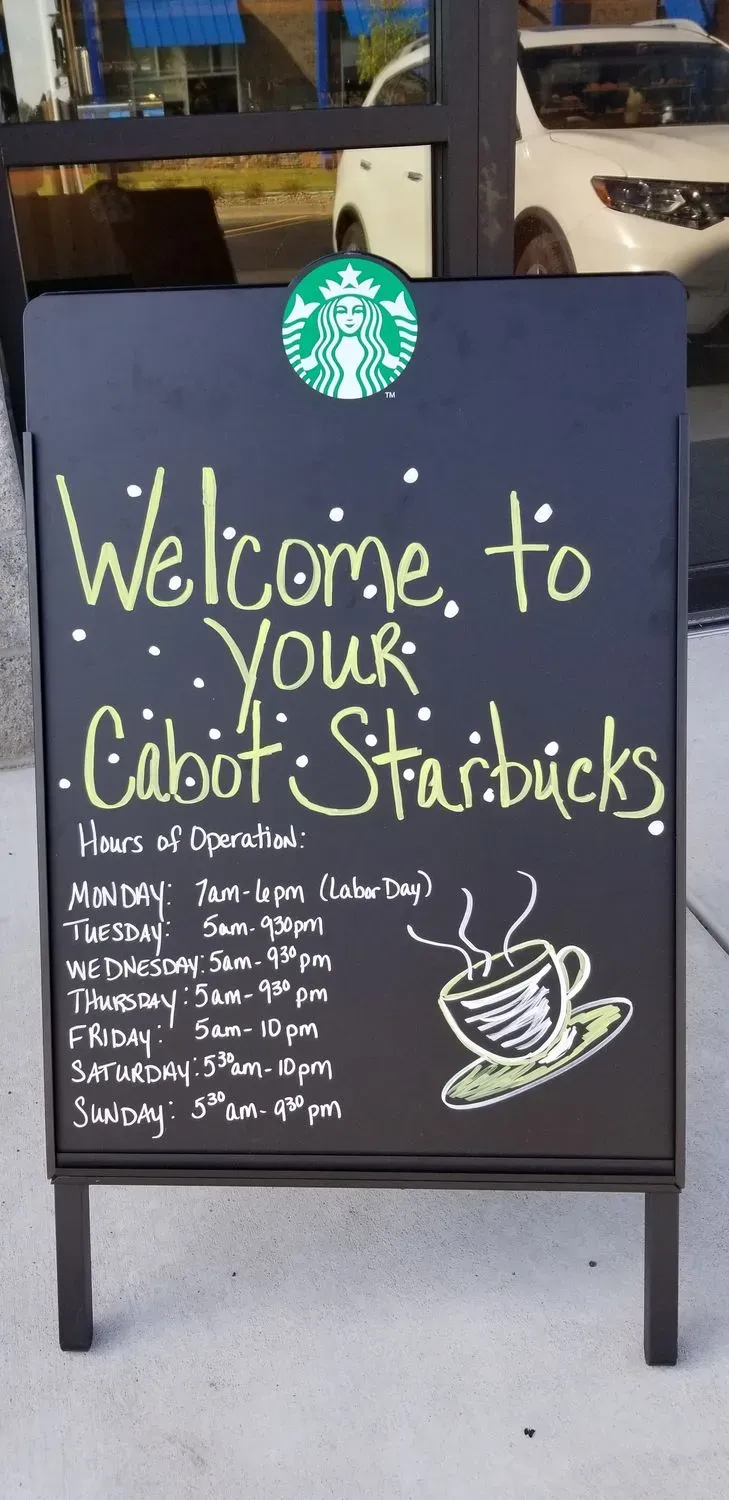 TM
Welcome to
your
Cabot Starbucks
Hours of Operation:
MONDAY: 7am-6pm (Labor Day)
TUESDAY: 5am-930pm
WEDNESDAY: 5am-930pm
THURSDAY: 5am-930pm
FRIDAY: 5am-10pm
SATURDAY: 530am-10pm
SUNDAY: 530am-930pm